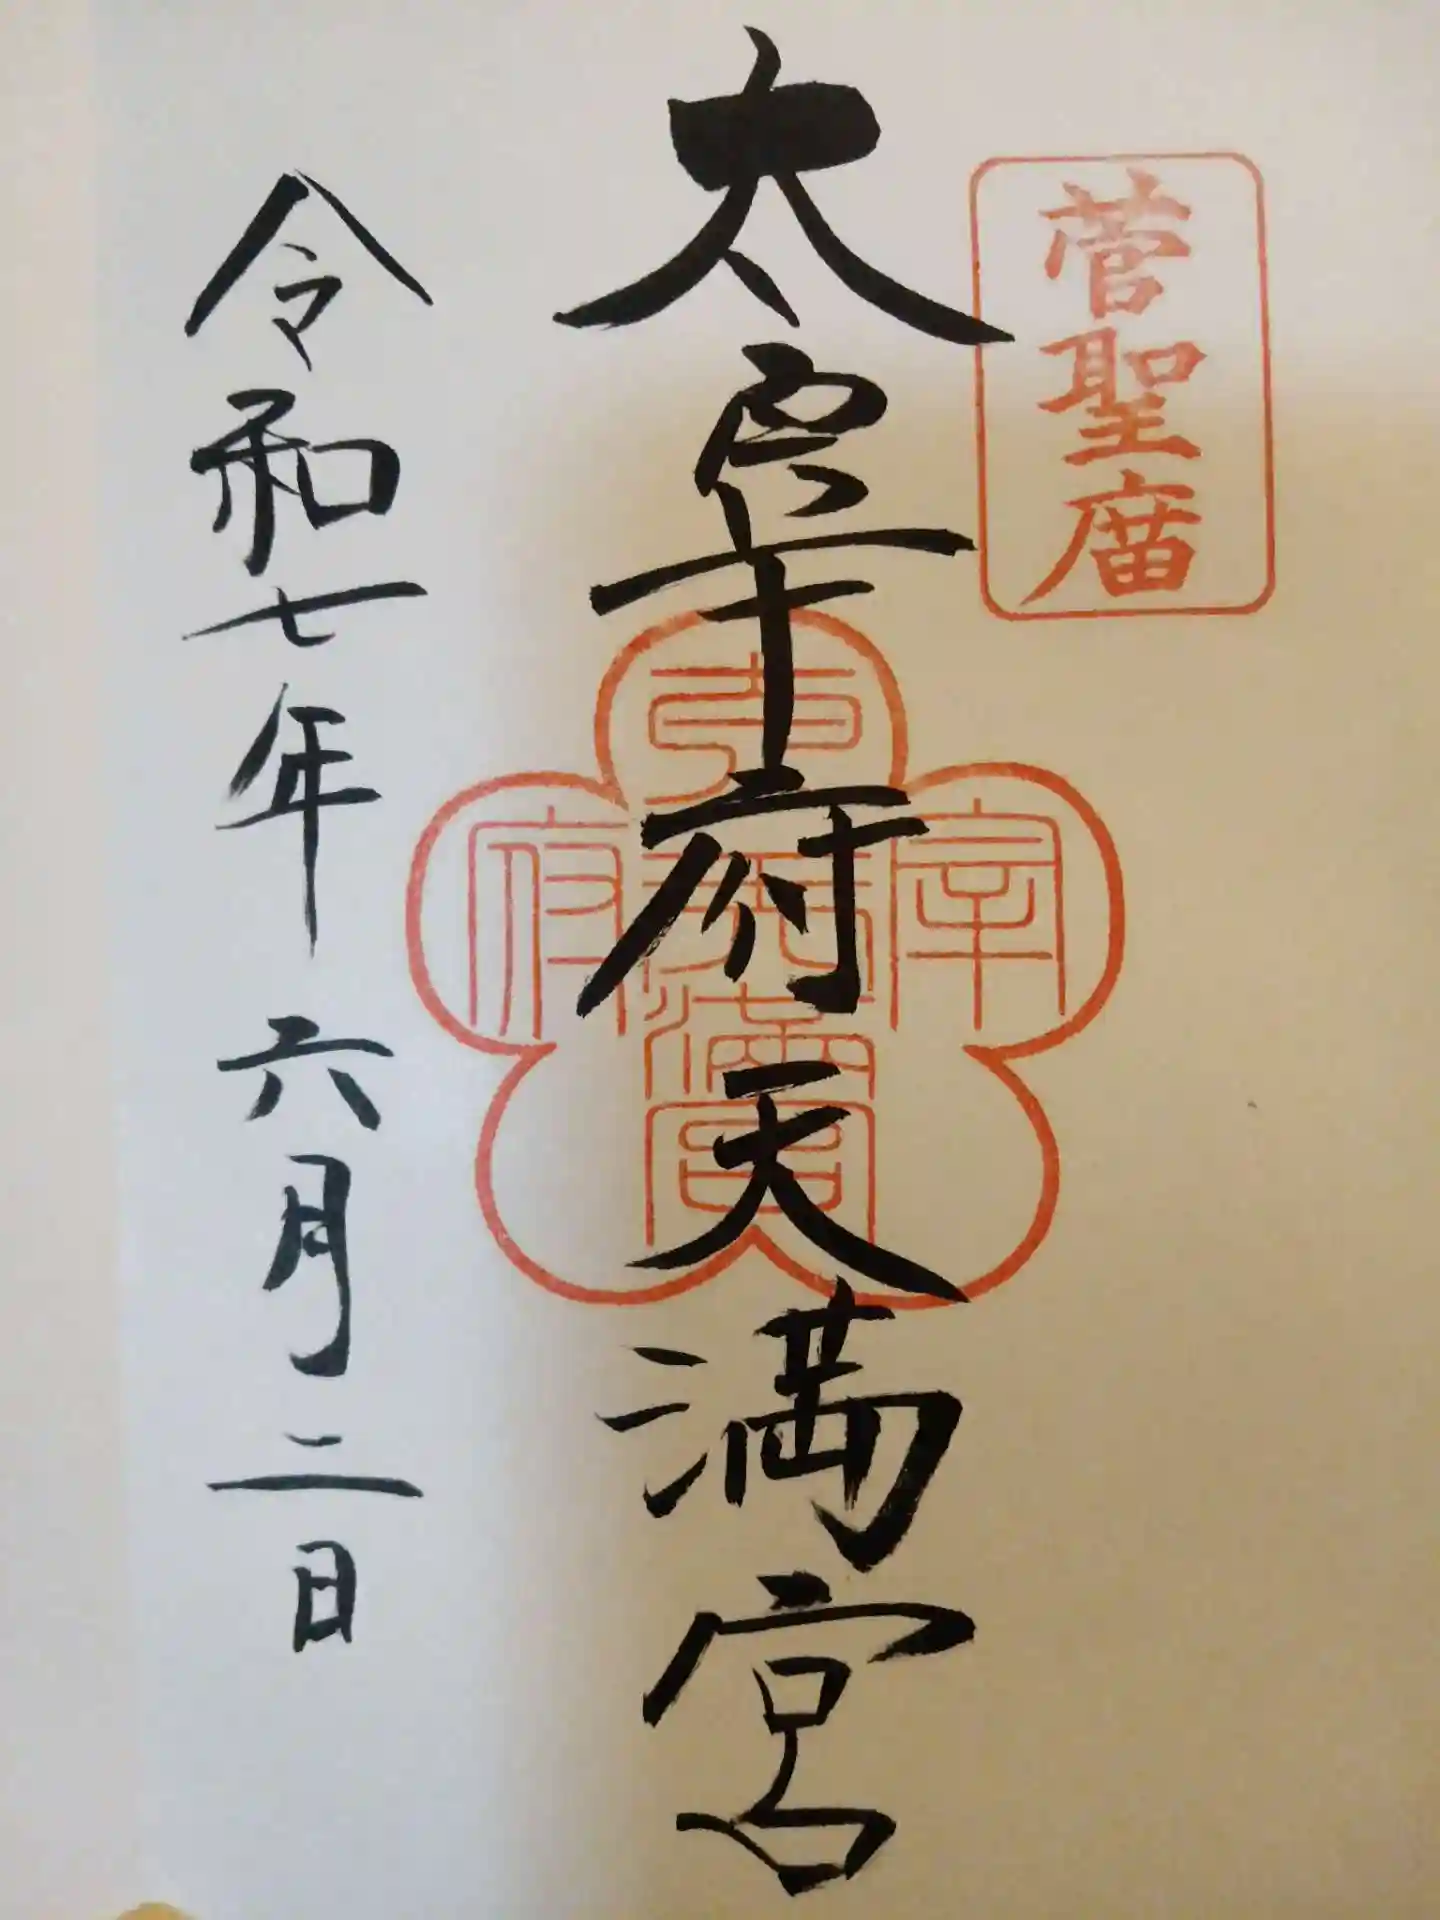 菅聖庿
太宰府天満宮
宰
府
滿宮
令和七年六月二日